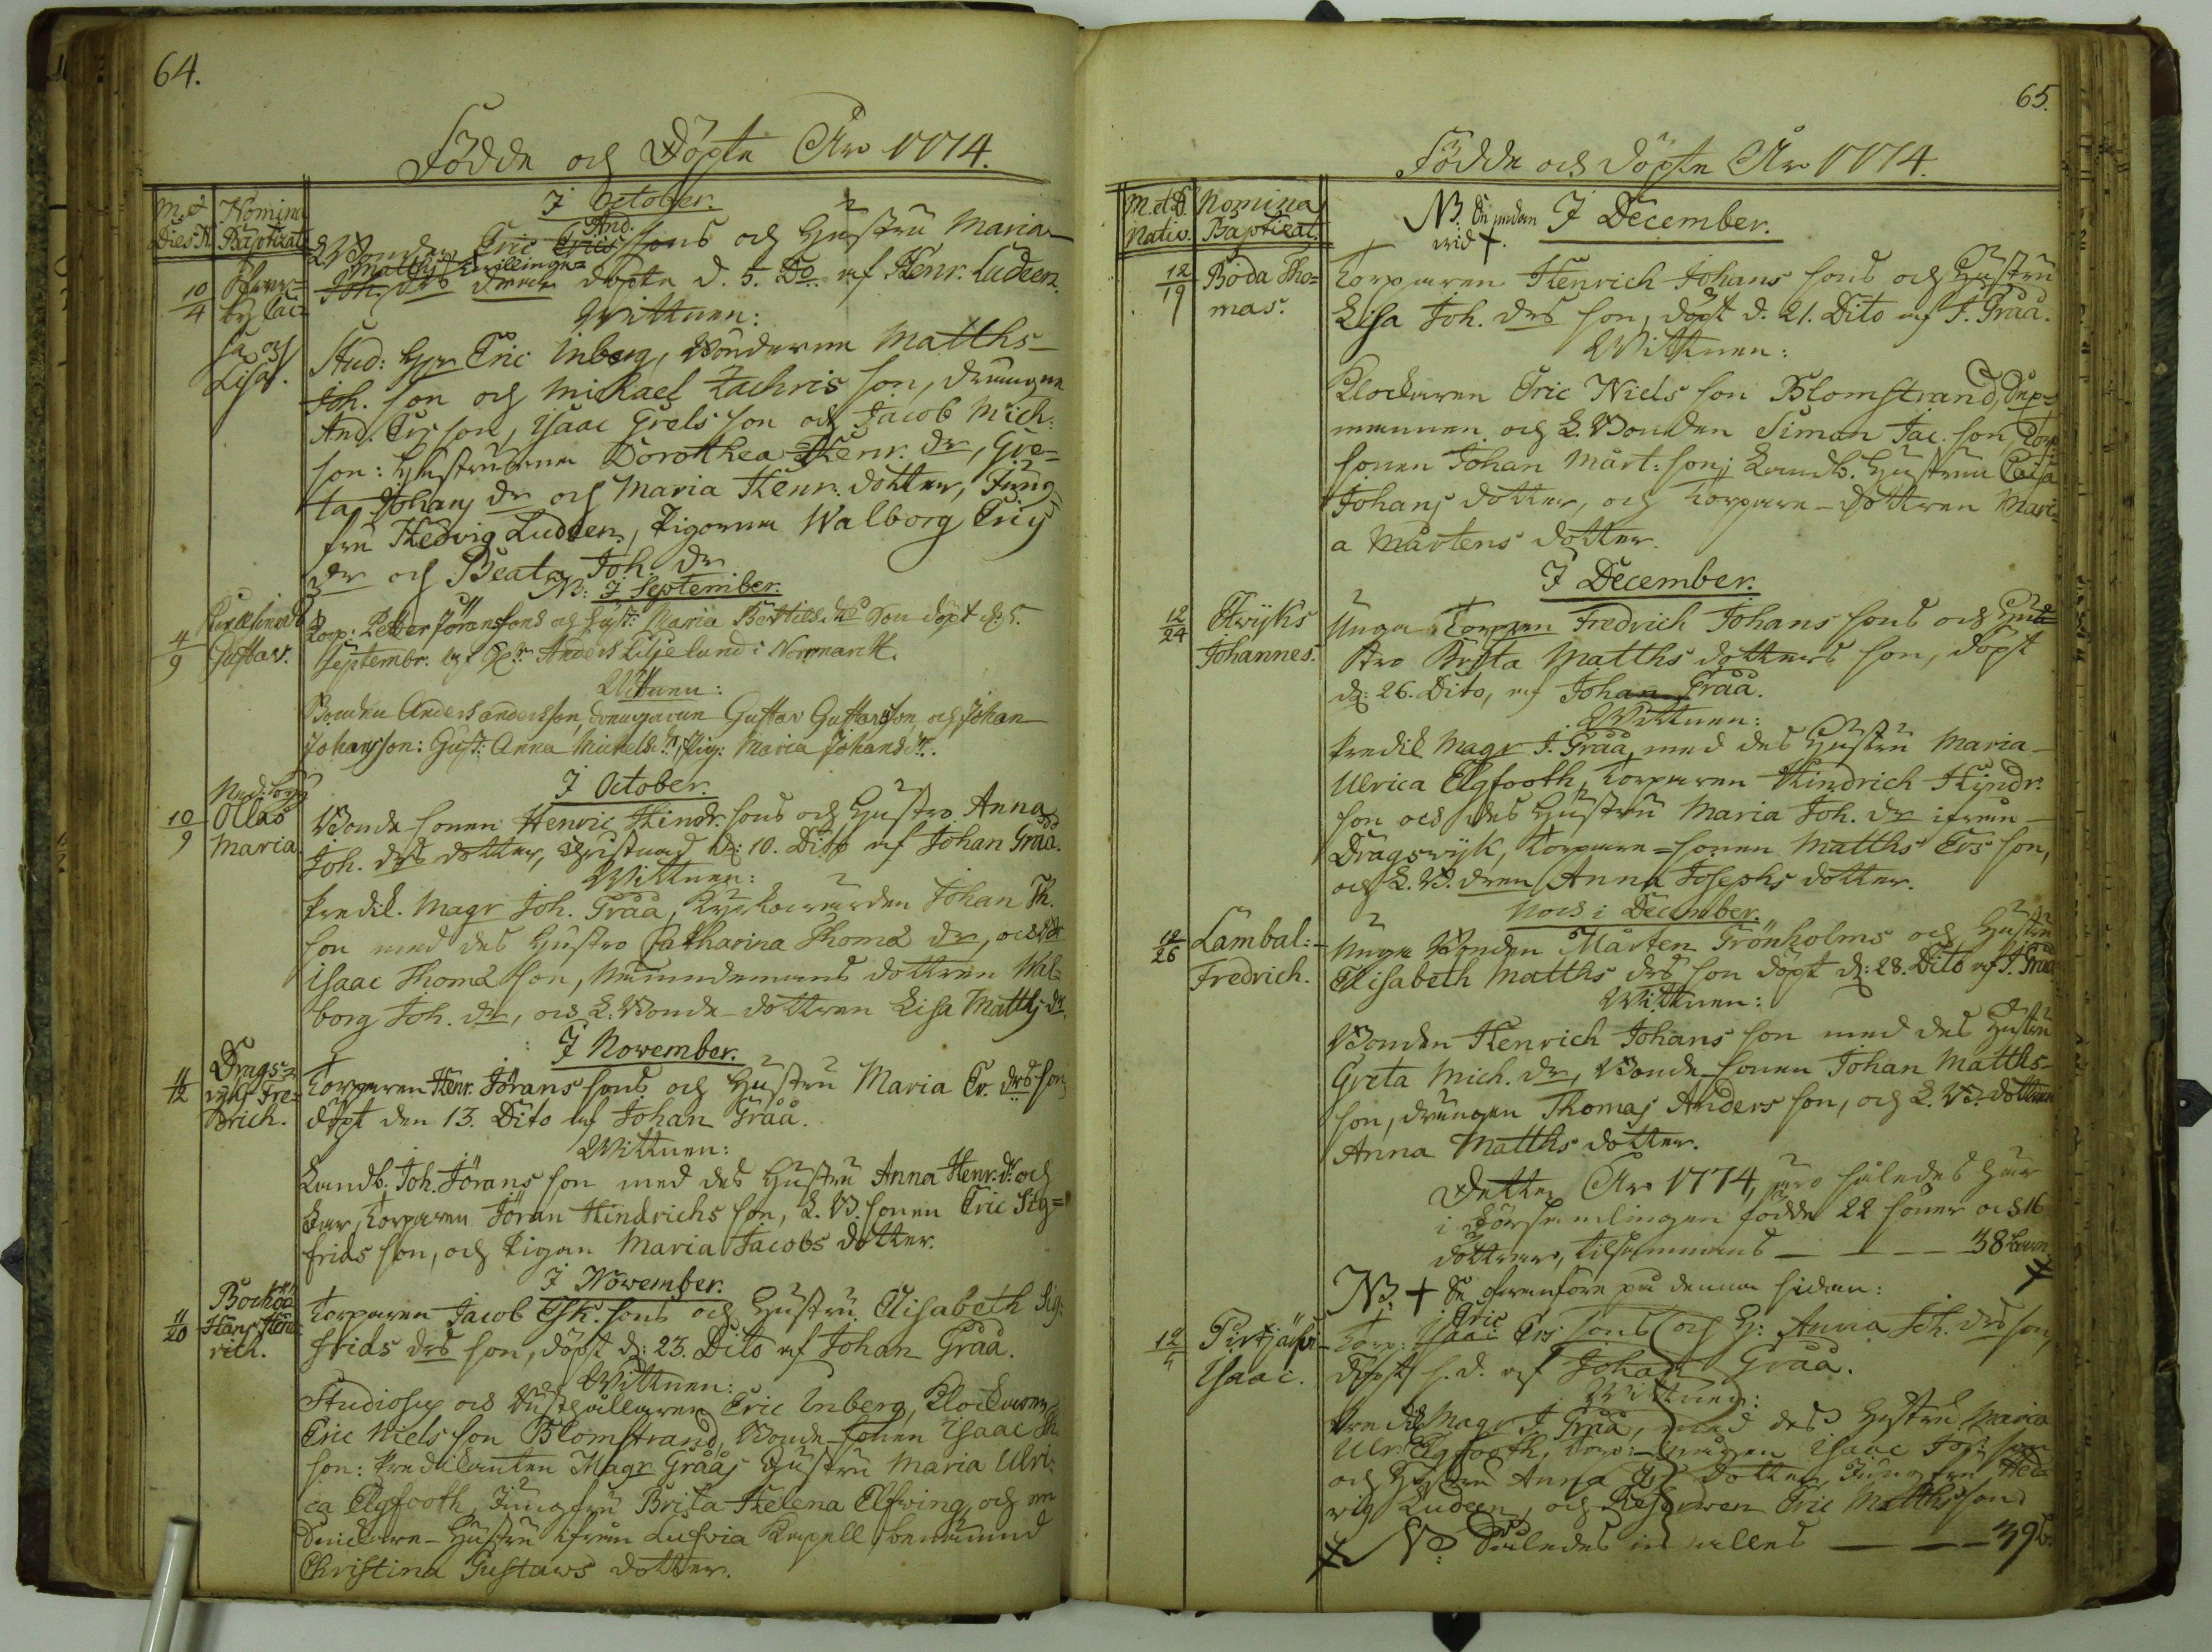 64.
Födde och Döpte Åhr 1774.
M. et Dies N.
Nomina Baptizat.
J October.
10/4
caisa och Lisa.
Bonden Eric And. sons och Hustru Maria
Matths drs Twillingar döpte d. 5. Do. af Henr. Ludeen.
Wittnen:
Stud: Herr Eric Inberg, Bönderne Matths
Joh. son och Mickael Zachris son, drängne
And. Ers son, Isaac Grels son och Jacob Mich.
son: Hustrurna Dorothea Henr. dr, Gre=
ta Johans dr och Maria Henr. dotter, Jung=
fru Hedvig Ludeen, Pigorna Walborg Eris
dr och Beata Joh. dr
NB: J September.
4/9
Gustav.
Torp: Petter Jöransons och Hust: Maria Bertils drs Son döpt d. 5
Septembr. af Hr. Anders Liljelund i Norrmark.
Wittnen:
Bonden Anders andersson, drengarne Gustav Gustavsson och Johan
Johansson: Hust: Anna Michelsdr, Pig: Maria Johansdr.
J October.
10/9
Ollas Maria.
Bonde sonen Henric Hindr. sons och Hustro Anna
Joh. drs dotter, Christnad d: 10. Dito af Johan Gråå.
Wittnen:
Predik. Magr Joh. Gråå, Kyrkowärden Johan Th.
son med des Hustro Catharina Thomæ dr, och
Isaac Thomæ son, Nämndemans dottren Wal=
borg Joh. dr, och L. Bonde-dottren Lisa Matths dr.
J November.
11/12
Drags=
wyks Fre=
drich.
Torparen Henr. Jörans sons och Hustru Maria Er. drs son,
döpt den 13. Dito af Johan Gråå.
Wittnen:
Landb. Joh. Jörans son med des Hustru Anna Henr. dr och
Torparen Jöran Hindrichs son, L. B. sonen Eric Sig=
frids son, och Pigan Maria Jacobs dotter.
J November.
11/20
Bockör
Hans Hen=
rich.
Torparen Jacob Esk. sons och Hustru Elisabeth Sig:
frids drs son, döpt d: 23. Dito af Johan Gråå.
Wittnen:
Studiosus och Eric Inberg, Klockaren
Eric Niels son Blomstrand, Bonde-sonen Isaac Th.
son: Predikanten Magr Grååś Hustru Maria Ulri=
ca Elgfooth, Jungfru Brita Helena Elfwing, och en
Hustru ifrån Lufvia Kapell benämnd
Christina Gustaws dotter.
65.
Födde och döpte Åhr 1774.
M. et D. Nativ.
Nomina Baptizat.
NB. Se nedan wid †.
J December.
12/19
Böda Tho=
mas.
Torparen Henrich Johans sons och Hustru
Lisa Joh. drs son, döpt d. 21. Dito af J. Gråå.
Wittnen:
Klockaren Eric Niels son Blomstrand,
mannen och L. Bonden Simon Jac. son, Torp=
sonen Johan Mårt: son; Landb. Hustrun Caisa
Johans dotter, och Torpare-dottren Mari=
a Mårtens dotter.
J December.
12/24
Ewyks
Johannes.
Unga Torparen Fredrich Johans sons och Hus=
tro Brita Matths dotters son, döpt
d: 26. Dito, af Johan Gråå.
Wittnen:
Predik. Magr J. Gråå, med des Hustru Maria
Ulrica Elgfooth, Torparen Hindrich Hindr.
son och des Hustru Maria Joh. dr ifrån
Dragswyk, Torpare=sonen Matths Ers son,
och L. B. dren Anna Josephs dotter.
Noch i December.
12/26
Lambal:
Fredrich.
Unga Bonden Mårten Grönholms och Hustru
Elisabeth Matths drs son döpt d: 28. Dito af J. Gråå
Wittnen:
Bonden Henrich Johans son med des Hustru
Greta Mich. dr, Bonde sonen Johan Matths
son, drängen Thomas Anders son, och L. B. dottren
Anna Matths dotter.
Detta Åhr 1774, äro således här
i Församlingen födde 22 söner och 16
döttrar, tilsammans — — — 38 barn.
NB. † Se ofwanföre på denna sidan:
12/4
Isaac.
Torp: Eric Ers sons och H: Anna Joh. drs son,
döpt s. d. af Johan Gråå.
Wittnen:
Predik. Magr J. Gråå, med des Hustru Maria
Ulr. Elgfooth, Torp: Isaac Jos: son
och Hustru Anna dotter, Jungfru Hed=
vig Ludeen, och Eric Matths son
NB: Således in alles — — — 39 b.